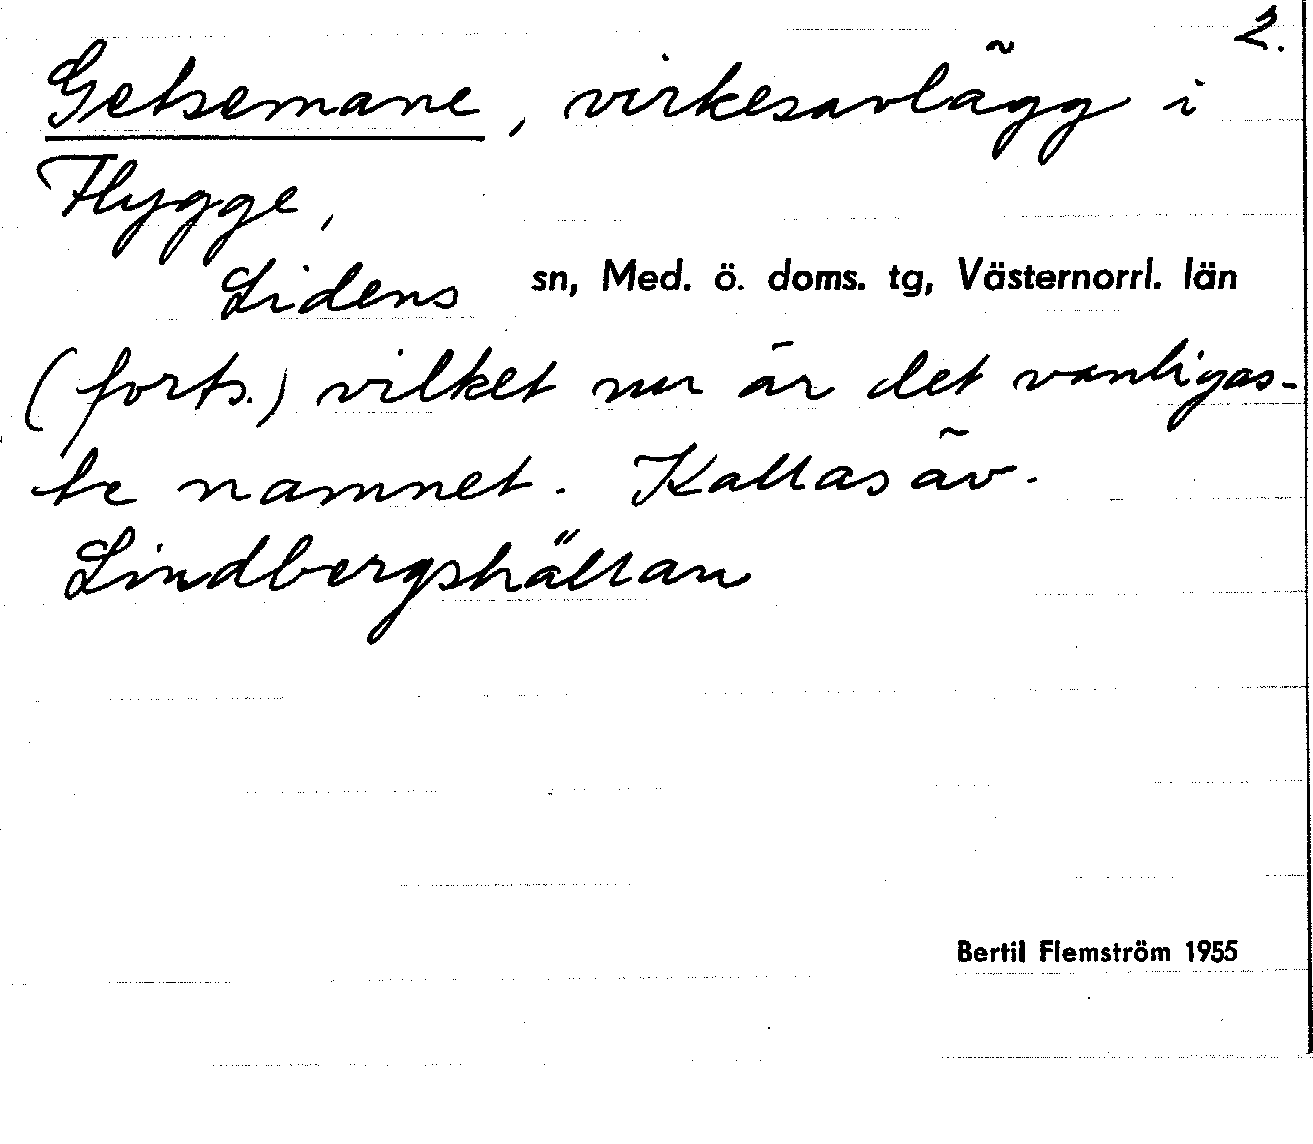 2.
Getsemane, virkesavlägg i
Flygge,
Lidens sn, Med. ö. doms. tg, Västernorrl. län
(forts.) vilket nu är det vanligas-
te namnet. Kallas äv.
Lindbergshällan
Bertil Flemström 1955